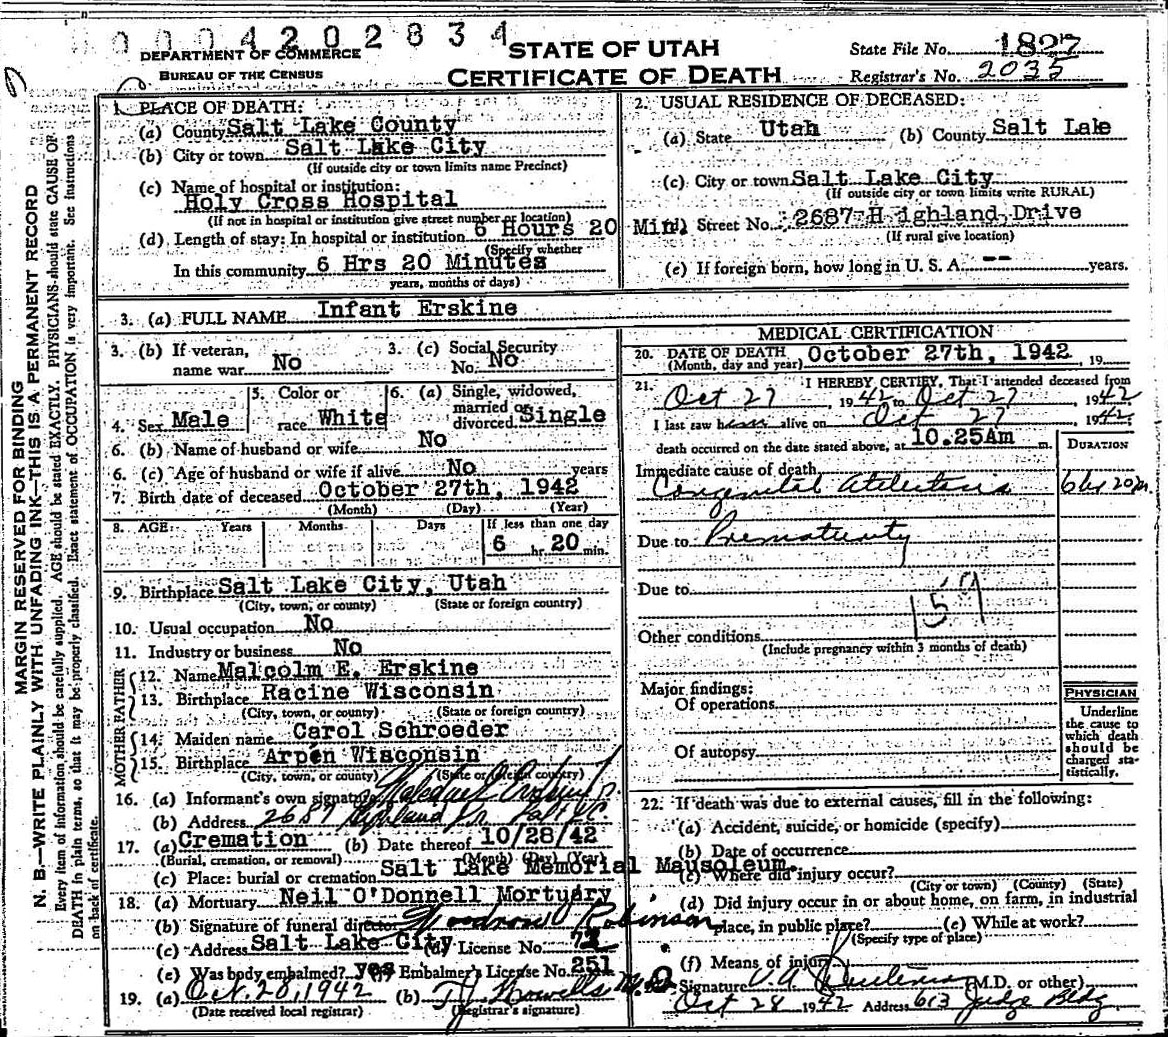 0004202834
DEPARTMENT OF COMMERCE
BUREAU OF THE CENSUS
STATE OF UTAH
CERTIFICATE OF DEATH
State File No. 1827
Registrar's No. 2035
MARGIN RESERVED FOR BINDING
N. B.—WRITE PLAINLY WITH UNFADING INK—THIS IS A PERMANENT RECORD
Every item of information should be carefully supplied. AGE should be stated EXACTLY. PHYSICIANS should state CAUSE OF
DEATH in plain terms, so that it may be properly classified. Exact statement of OCCUPATION is very important. See instructions
on back of certificate.
1. PLACE OF DEATH:
(a) County Salt Lake County
(b) City or town Salt Lake City
(If outside city or town limits name Precinct)
(c) Name of hospital or institution:
Holy Cross Hospital
(If not in hospital or institution give street number or location)
(d) Length of stay: In hospital or institution 6 Hours 20 Min.
(Specify whether
In this community 6 Hrs 20 Minutes
years, months or days)
2. USUAL RESIDENCE OF DECEASED:
(a) State Utah (b) County Salt Lale
(c) City or town Salt Lake City
(If outside city or town limits write RURAL)
(d) Street No. 2687 H ighland Drive
(If rural give location)
(e) If foreign born, how long in U. S. A. -- years.
3. (a) FULL NAME Infant Erskine
3. (b) If veteran, name war No
3. (c) Social Security No. No
4. Sex Male
5. Color or race White
6. (a) Single, widowed, married or divorced Single
6. (b) Name of husband or wife No
6. (c) Age of husband or wife if alive No years
7. Birth date of deceased October 27th, 1942
(Month) (Day) (Year)
8. AGE: Years Months Days If less than one day
6 hr. 20 min.
9. Birthplace Salt Lake City, Utah
(City, town, or county) (State or foreign country)
10. Usual occupation No
11. Industry or business No
FATHER
12. Name Malcolm E. Erskine
13. Birthplace Racine Wisconsin
(City, town, or county) (State or foreign country)
MOTHER
14. Maiden name Carol Schroeder
15. Birthplace Arpen Wisconsin
(City, town, or county) (State or foreign country)
16. (a) Informant's own signature
(b) Address 2687 Highland Dr.
17. (a) Cremation (b) Date thereof 10/28/42
(Burial, cremation, or removal) (Month) (Day) (Year)
(c) Place: burial or cremation Salt Lake Memorial Mausoleum.
18. (a) Mortuary Neil O'Donnell Mortuary
(b) Signature of funeral director Woodrow O Robinson
(c) Address Salt Lake City (d) License No.
(e) Was body embalmed? yes (f) Embalmer's License No. 251
19. (a) Oct. 28, 1942 (b) T. J. Howells M.D.
(Date received local registrar) (Registrar's signature)
MEDICAL CERTIFICATION
20. DATE OF DEATH October 27th, 1942, 19
(Month, day and year)
21. I HEREBY CERTIFY, That I attended deceased from
Oct 27, 1942 to Oct 27, 1942
I last saw him alive on Oct 27, 1942.
death occurred on the date stated above, at 10.25Am m.
DURATION
Immediate cause of death
Congenital Atelectasis 6 hr 20 m.
Due to Prematurity
Due to
159
Other conditions
(Include pregnancy within 3 months of death)
Major findings:
Of operations
Of autopsy
PHYSICIAN
Underline
the cause to
which death
should be
charged sta-
tistically.
22. If death was due to external causes, fill in the following:
(a) Accident, suicide, or homicide (specify)
(b) Date of occurrence
(c) Where did injury occur?
(City or town) (County) (State)
(d) Did injury occur in or about home, on farm, in industrial
place, in public place? (e) While at work?
(Specify type of place)
(f) Means of injury
23. Signature (M.D. or other)
Oct 28 1942 Address 613 Judge Bldg